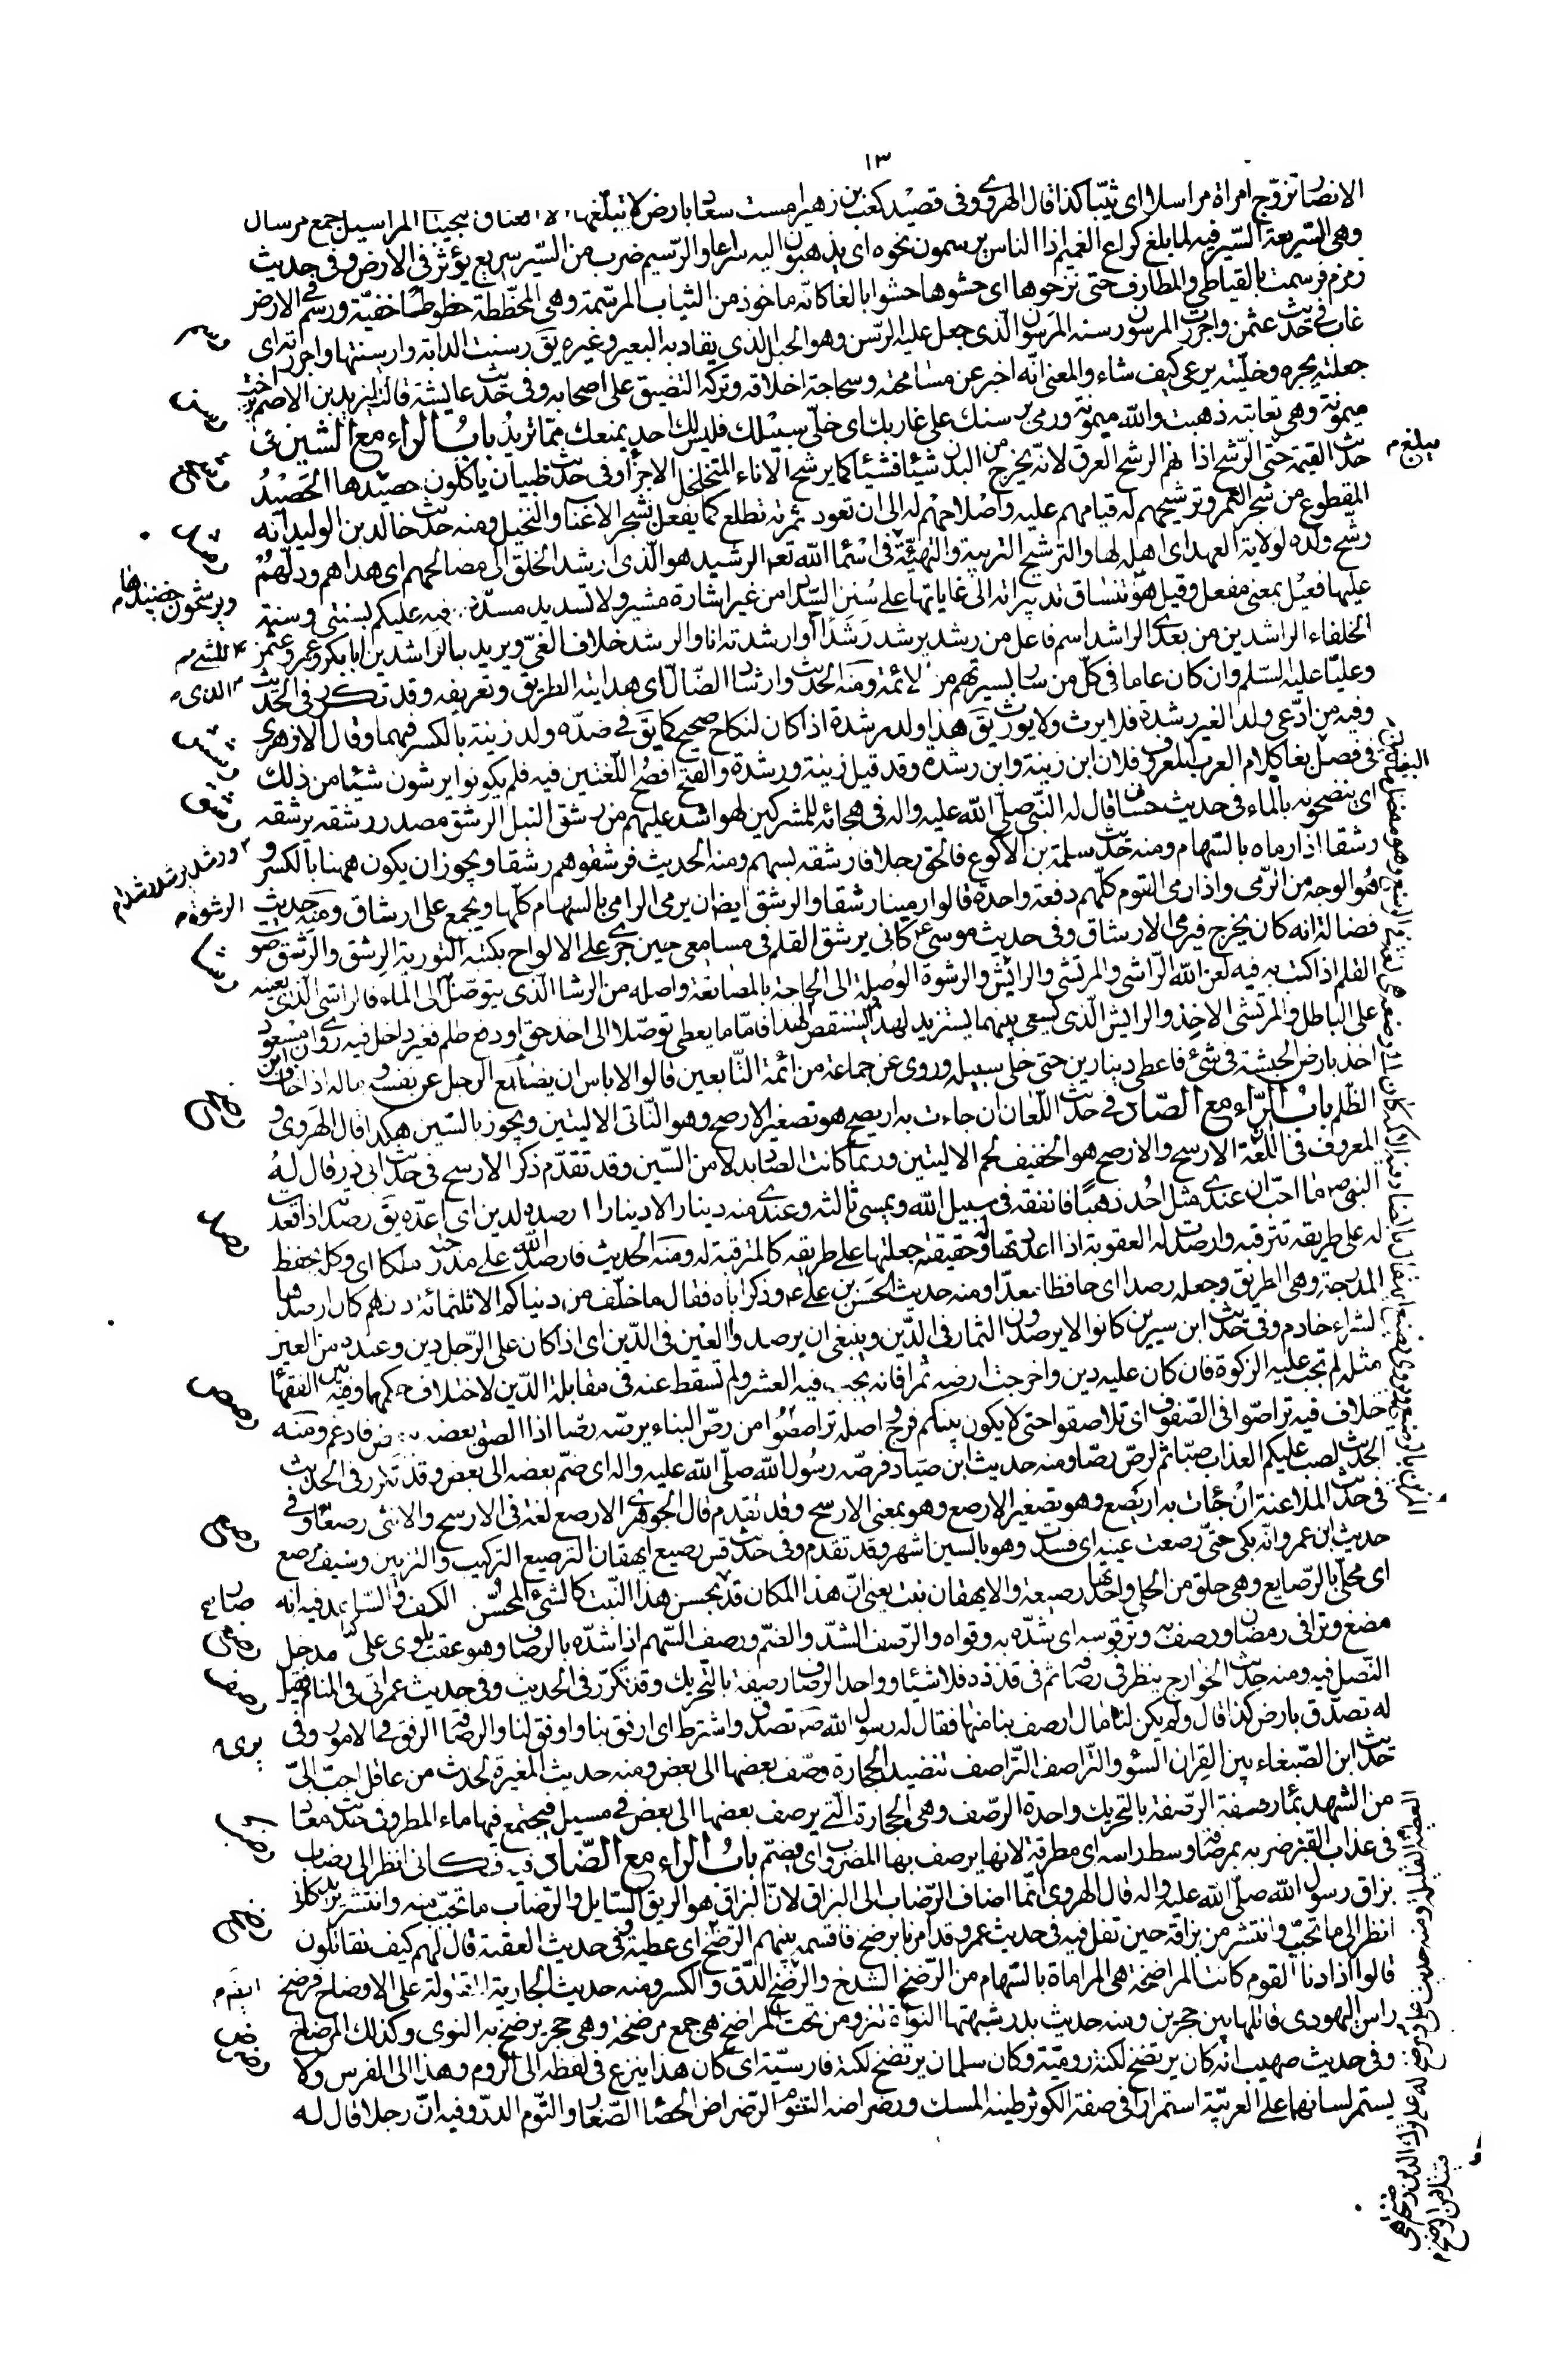 ١٣
الانصار تزوّج امراة مراسلا اى ثيّبا كذا قال الهروى وفى قصيد كعب بن زهير امست سعاد بارض لا تبلّغها المراسيل جمع مرسال
وهى السّريعة السّير فيه لما بلغ كراع الغميم اذا الناس يرسمون نحوه اى يذهبون اليه سراعا والرّسيم ضرب من السّير سريع يؤثر فى الارض وفى حديث
زمزم فرسمت بالقباطى والمطارف حتى نزحوها اى حشوها حشوا بالغا كانّه ماخوذ من الثياب المرسّمة وهى المخطّطة خطوطا خفيّة ورسم فى الارض
غاب فى حديث عثمن واجررت المرسون رسنه المرسون الّذى جعل عليه الرّسن وهو الحبل الذى يقاد به البعير وغيره يق رسنت الدابة وارسنتها واجررته اى
جعلته يجره وخلّيته يرعى كيف شاء والمعنى انّه اخبر عن مسامحته وسجاحة اخلاقه وتركه التضييق على اصحابه وفى حديث عايشة قالت ليزيد بن الاصم ابن اخت
ميمونة وهى تعاتبه ذهبت والله ميمونة ورمى برسنك على غاربك اى خلّى سبيلك فليس لك احد يمنعك ممّا تريد باب الراء مع الشين فى
حديث القيمة حتى الرّشح اذانهم الرشح العرق لانه يخرج من البدن شيئا فشيئا كما يرشح الاناء المتخلخل الاجزاء وفى حديث ظبيان ياكلون حصيدها الحصيد
المقطوع من شجر الثمر وترشيحهم له قيامهم عليه واصلاحهم له الى ان تعود ثمرته تطلع كما يفعل بشجر الاعناب والنخيل ومنه حديث خالد بن الوليد انه
رشّح ولده لولاية العهد اى اهله لها والترشيح التربية والتهيئة فى اسماء الله تعه الرشيد هو الّذى ارشد الخلق الى مصالحهم اى هداهم ودلّهم
عليها فعيل بمعنى مفعل وقيل هو تنساق تدبيراته الى غاياتها على سنن السداد من غير اشارة مشير ولا تسديد مسدّد فيه عليكم بسنتى وسنة
الخلفاء الراشدين من بعدى الراشد اسم فاعل من رشد يرشد رشدا وارشدته انا والرشد خلاف الغىّ ويريد بالراشدين ابا بكر وعمر وعثمن
وعليّا عليه السّلم وان كان عاما فى كلّ من سار بسيرتهم من الائمة ومنه الحديث وارشاد الضّالّ اى هدايته الطريق وتعريفه وقد تكرر فى الحديث
وفيه من ادّعى ولدا لغير رشدة فلا يرث ولا يورث يق هذا ولد رشدة اذا كان لنكاح صحيح كما يق فى ضدّه ولد زنية بالكسر فيهما وقال الازهرى
فى فصل بغا كلام العرب المعروف فلان ابن زنية وابن رشدة وقد قيل زنية ورشدة والفتح افصح اللّغتين فيه فلم يكونوا يرشون شيئا من ذلك
اى ينضحونه بالماء فى حديث حسان قال له النّبى صلّى الله عليه واله فى هجائه للمشركين لهو اشد عليهم من رشق النبل الرشق مصدر رشقه يرشقه
رشقا اذا رماه بالسّهام ومنه حديث سلمة بن الاكوع فالحق رجلا فارشقه بسهم ومنه الحديث فرشقوهم رشقا ويجوز ان يكون ههنا بالكسر و
هو الوجه من الرّمى واذا رمى القوم كلّهم دفعة واحدة قالوا رمينا رشقا والرشق ايضا ان يرمى الرامى بالسهام كلّها ويجمع على ارشاق ومنه حديث
فضالة انه كان يخرج فيرمى الارشاق وفى حديث موسى ع كانى برشق القلم فى مسامعى حين جرى على الالواح بكتبه التورية الرشق والرشق صوت
القلم اذا كتب به فيه لعن الله الرّاشى والمرتشى والرايش والرشوة الوصلة الى الحاجة بالمصانعة واصله من الرشا الّذى يتوصّل الى الماء فالراشى الّذى يعينه
على الباطل والمرتشى الاخذ والرايش الّذى يسعى بينهما يستزيد لهذا ويستنقص لهذا فامّا ما يعطى توصّلا الى اخذ حق او دفع ظلم فغير داخل فيه روى ان ابن مسعود
اخذ بارض الحبشة فى شئ فاعطى دينارين حتى خلى سبيله وروى عن جماعة من ائمة التّابعين قالوا لا باس ان يصانع الرجل عن نفسه وماله اذا خاف
الظلم باب الرّاء مع الصّاد فى حديث اللّعان ان جاءت به اريصح هو تصغير الارصح وهو النّاتى الاليتين ويجوز بالسّين هكذا قال الهروى و
المعروف فى اللّغة الارسح والارصح هو الخفيف لحم الاليتين وربما كانت الصاد بدلا من السّين وقد تقدّم ذكر الارسح فى حديث ابى ذر قال له
النبى صه ما احبّ ان عندى مثل احد ذهبا فانفقه فى سبيل الله ويمسى ثالثة وعندى منه دينار الا دينارا ارصده لدين اى اعدّه يق رصدته اذا قعدت
له على طريقه تترقبه وارصدت له العقوبة اذا اعددتها له وحقيقته جعلتها على طريقه كالمترقبة له ومنه الحديث فارصد الله على مدرجته ملكا اى وكله بحفظ
المدرجة وهى الطريق وجعله رصدا اى حافظا معدّا ومنه حديث الحسن بن على ع وذكر اباه فقال ما خلّف من دنياكم الا ثلثمائة درهم كان ارصدها
لشراء خادم وفى حديث ابن سيرين كانوا لا يرصدون الثمار فى الدّين وينبغى ان يرصد والعين فى الدّين اى اذا كان على الرّجل دين وعنده من العين
مثله لم تجب عليه الزكوة فان كان عليه دين واخرجت ارضه ثمرا فانه يجب فيه العشر ولم تسقط عنه فى مقابلة الدّين لاختلاف حكمهما وفيه بين الفقهاء
خلاف فيه تراصّوا فى الصّفوف اى تلاصقوا حتى لا يكون بينكم فرج واصله تراصصوا من رصّ البناء يرصّه رصّا اذا الصق بعضه ببعض فادغم ومنه
الحديث لصب عليكم العذاب صبّا ثم لرصّ رصّا ومنه حديث ابن صياد فرصّه رسول الله صلّى الله عليه واله اى ضمّ بعضه الى بعض وقد تكرر فى الحديث
فى حديث الملاعنة ان جائت به اريصع وهو تصغير الارصع وهو بمعنى الارسح وقد تقدم قال الجوهرى الارصع لغة فى الارسح والانثى رصعاء وفى
حديث ابن عمرو انّه بكى حتّى رصعت عينه اى فسدت وهو بالسين اشهر وقد تقدم وفى حديث قس رصيع ايهقان الترصيع التركيب والتزيين وسيف مرصع
اى محلّى بالرّصايع وهى حلق من الحلى واحدتها رصيعة والايهقان نبت يعنى انّ هذا المكان قد بحسن هذا النّبت كالشئ المحسّن فيه انه
مضغ وترا فى رمضان ورصف به وتر قوسه اى شدّه به وقواه والرّصف الشدّ والضمّ ورصف السّهم اذا شدّه بالرصاف وهو عقب يلوى على مدخل
النّصل فيه ومنه حديث الخوارج ينظر فى رصافه ثم فى قذذه فلا شيئا وواحد الرصاف رصفة بالتّحريك وقد تكرّر فى الحديث وفى حديث عمر اتى فى المنام فقيل
له تصدّق بارض كذا قال ولم يكن لنا مال ارصف بنا منها فقال له رسول الله صه تصدق واشترط اى ارفق بنا واوفق لنا والرصافة الرفق فى الامور وفى
حديث ابن الصّبغاء بين القران السوء والتّراصف التّراصف تنضيد الحجارة وصف بعضها الى بعض ومنه حديث المغيرة لحديث من عاقل احبّ الىّ
من الشهد بماء رصفة الرّصفة بالتحريك واحدة الرّصف وهى الحجارة الّتى يرصف بعضها الى بعض فى مسيل فيجتمع فيها ماء المطر وفى حديث معاذ
فى عذاب القبر ضربه بمرصافة وسط راسه اى مطرقة لانها يرصف بها المضروب اى يضمّ باب الراء مع الضّاد فيه فكانى انظر الى رضاب
بزاق رسول الله صلّى الله عليه واله قال الهروى انّما اضاف الرّضاب الى البزاق لانّ البزاق هو الريق السّايل والرّضاب ما تحبّب منه وانتشر يريد كانى
انظر الى ما تحبّب وانتشر من بزاقه حين تفل فيه فى حديث عمر وقد امرنا برضخ فاقسمه بينهم الرّضخ اى عطية وفى حديث العقبة قال لهم كيف تقاتلون
قالوا اذا دنا القوم كانت المراضخة هى المراماة بالسّهام من الرّضخ الشدخ والرضخ الدّق والكسر ومنه حديث الجارية المقتولة على الاوضاح فرضخ
راس اليهودى قاتلها بين حجرين ومنه حديث بدر شبهتها النواة تنزو من تحت المراضخ هى جمع مرضخة وهى حجر يرضخ به النوى وكذلك المرضاخ
وفى حديث صهيب انه كان يرتضخ لكنة روميّة وكان سلمان يرتضخ لكنة فارسيّة اى كان هذا ينزع فى لفظه الى الروم وهذا الى الفرس ولا
يستمر لسانهما على العربيّة استمرارا فى صفة الكوثر طينه المسك ورضراضه التوم الرّضراض الحصا الصّغار والتّوم الدرّ وفيه انّ رجلا قال له